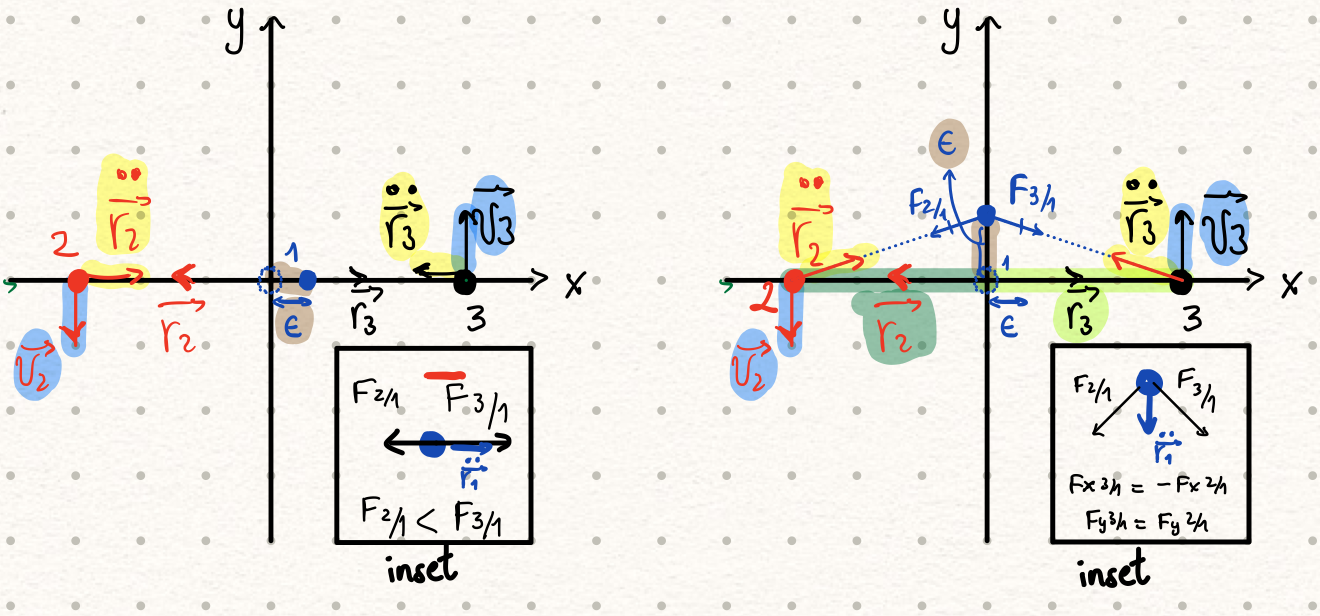 y
r̈⃗₂
2
v⃗₂
r⃗₂
1
ϵ
r̈⃗₃
v⃗₃
r⃗₃
3
x
F2/1 F3/1
r̈⃗₁
F2/1 < F3/1
inset
y
ϵ
F2/1
F3/1
r̈⃗₂
2
v⃗₂
r⃗₂
1
ϵ
r̈⃗₃
v⃗₃
r⃗₃
3
x
F2/1 F3/1
r̈⃗₁
Fx3/1 = -Fx2/1
Fy3/1 = Fy2/1
inset